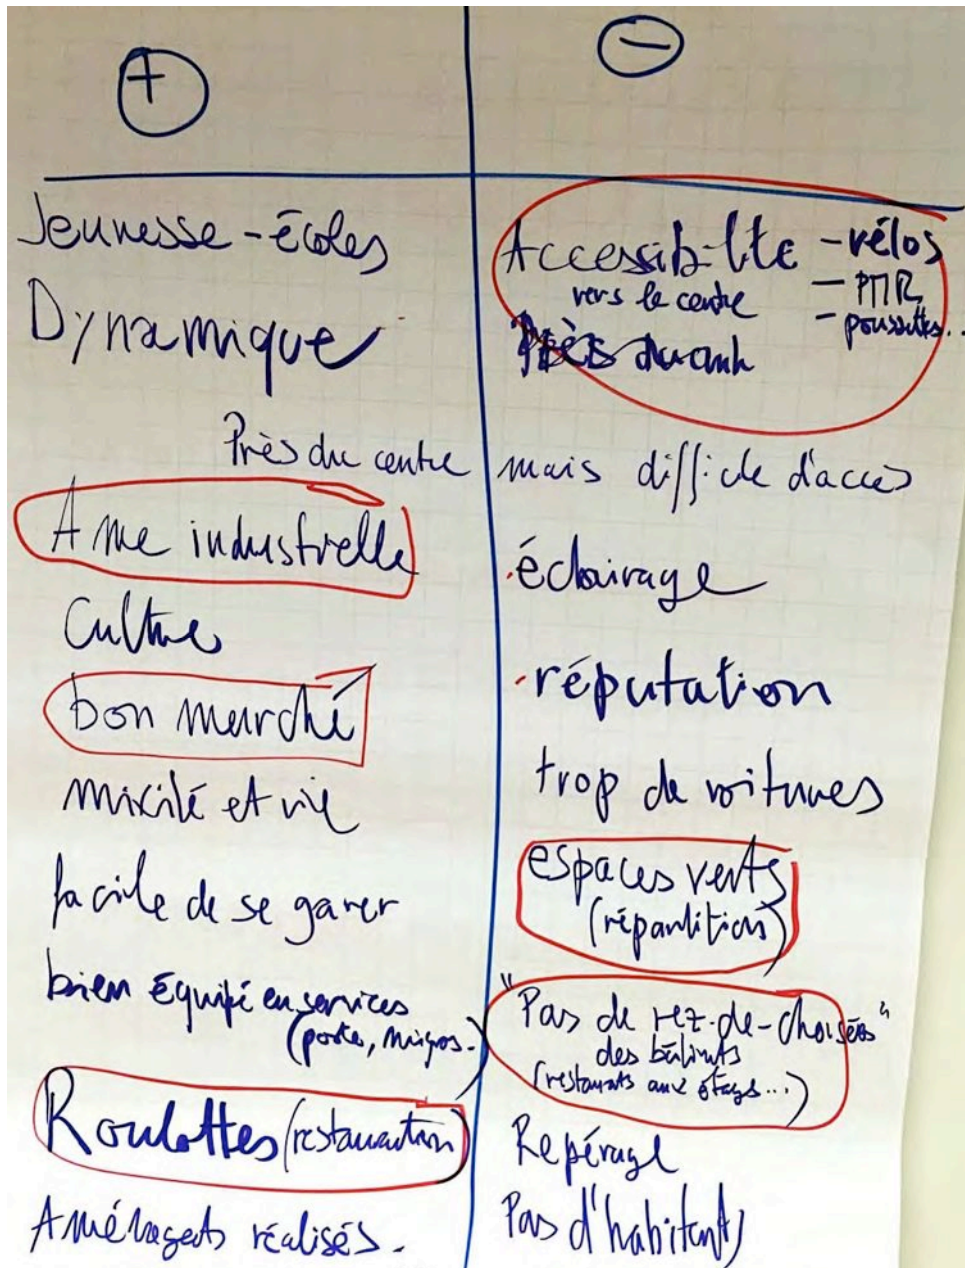 +
Jeunesse - écoles
Dynamique
Près du centre mais difficile d'accès
Ame industrielle
Culture
bon marché
mixité et vie
facile de se garer
bien équipé en services
(poste, migros..)
Roulottes (restauration)
Aménagets réalisés.
−
Accessibilité - vélos
vers le centre - PMR
- poussettes...
· éclairage
· réputation
trop de voitures
espaces verts
(répartition)
"Pas de rez-de-chaussées"
des bâtiments
(restaurants aux étages...)
Repérage
Pas d'habitants